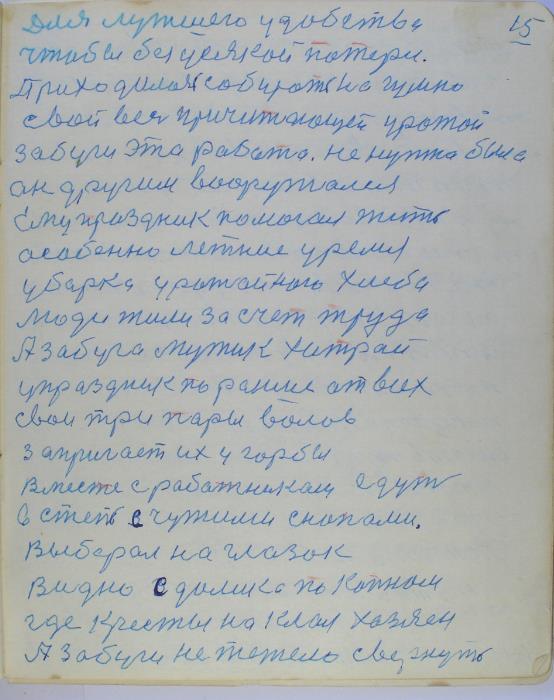 15
Для лутшего удобства
чтобы без усякой потери.
Приходился собирать на гумно
свой весь причитающей урожай
Забуги эта работа. не нужна была
ан другим вооружался
Ему праздник помогал жить
особенно летние уремя
уборка урожайного хлеба
люди жили за счет труда
А забуга мужик хитрай
упраздник пораниe от всех
свои три пары волов
запригает их у горбы
Вместе с работником едут
в степь с чужими снопами.
Выберал на глазок
Видно с долика по копном
где кресты на клал хозяен
А Забуги не тежело свернуть